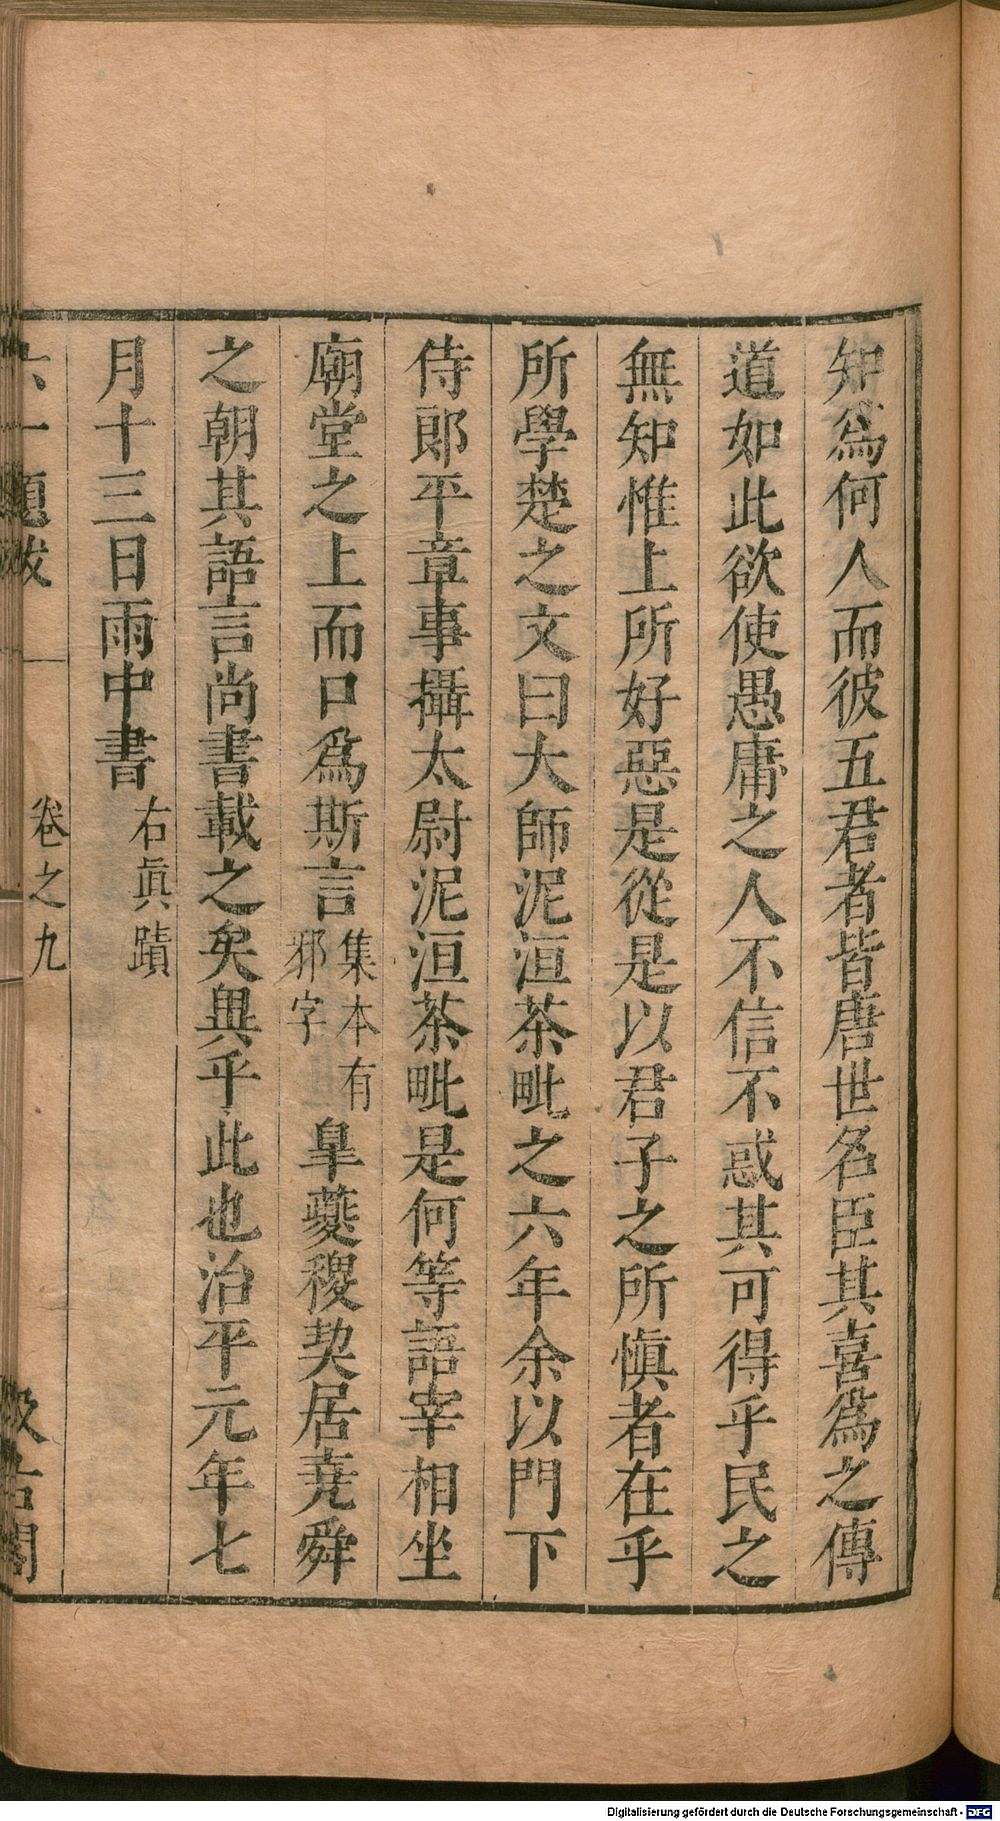 知爲何人而彼五君者皆唐世名臣其喜爲之傳
道如此欲使愚庸之人不信不惑其可得乎民之
無知惟上所好惡是從是以君子之所愼者在乎
所學楚之文曰大師泥洹茶毗之六年余以門下
侍郎平章事攝太尉泥洹茶毗是何等語宰相坐
廟堂之上而口爲斯言集本有邪字皐夔稷契居堯舜
之朝其語言尚書載之矣異乎此也治平元年七
月十三日雨中書右眞蹟
六一題跋 卷之九 汲古閣
Digitalisierung gefördert durch die Deutsche Forschungsgemeinschaft - DFG